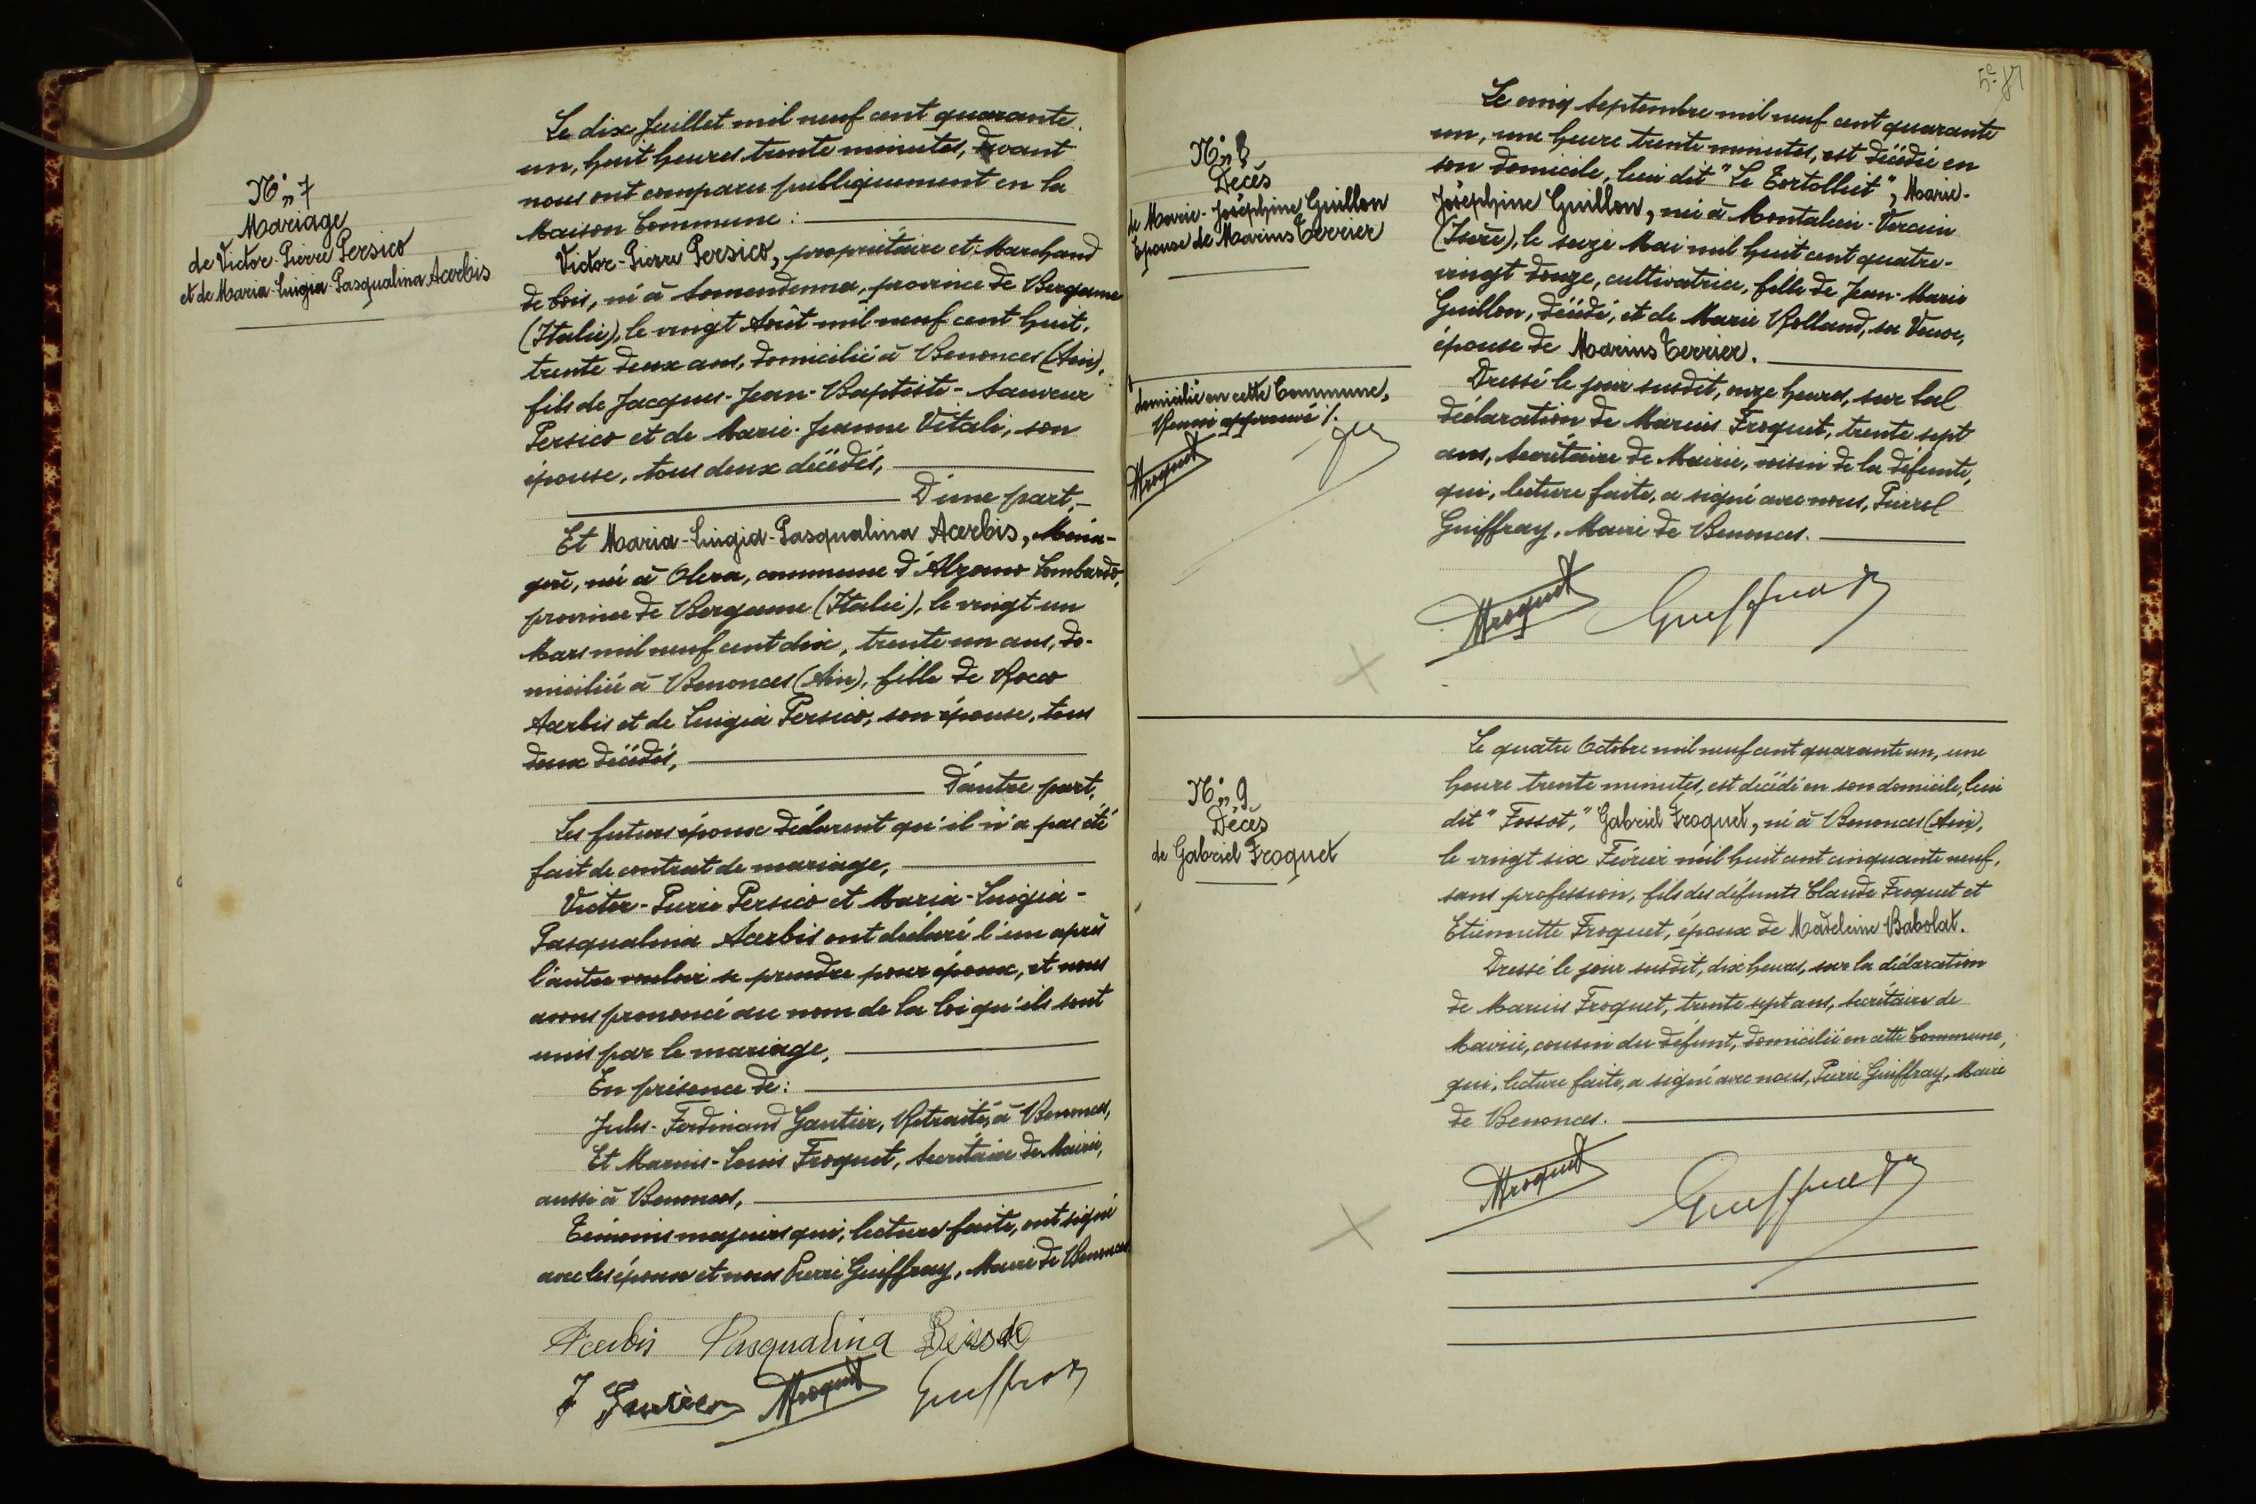 N°„ 7
Mariage
de Victor-Pierre Persico
et de Maria-Luigia-Pasqualina Acerbis
Le dix Juillet mil neuf cent quarante
un, huit heures trente minutes, devant
nous ont comparu publiquement en la
Maison Commune :
Victor-Pierre Persico, propriétaire et Marchand
de bois, né à Somendenna, province de Bergame
(Italie), le vingt Août mil neuf cent huit,
trente deux ans, domicilié à Benonces (Ain),
fils de Jacques-Jean-Baptiste-Sauveur
Persico et de Marie-Jeanne Vitali, son
épouse, tous deux décédés,
D'une part,
Et Maria-Luigia-Pasqualina Acerbis, Ména-
gère, née à Olera, commune d'Alzano Lombardo,
province de Bergame (Italie), le vingt un
Mars mil neuf cent dix, trente un ans, do-
miciliée à Benonces (Ain), fille de Rocco
Acerbis et de Luigia Persico, son épouse, tous
deux décédés,
D'autre part,
Les futurs époux déclarent qu'il n'a pas été
fait de contrat de mariage,
Victor-Pierre Persico et Maria-Luigia-
Pasqualina Acerbis ont déclaré l'un après
l'autre vouloir se prendre pour époux, et nous
avons prononcé au nom de la loi qu'ils sont
unis par le mariage,
En présence de :
Jules-Ferdinand Gautier, Retraité, à Benonces,
Et Marius-Louis Froquet, Secrétaire de Mairie,
aussi à Benonces,
Témoins majeurs qui, lecture faite, ont signé
avec les époux et nous Pierre Guiffray, Maire de Benonces
Acerbis Pasqualina Persico
J Gautier Froquet Guiffray
5e 81
N°„ 8
Décès
de Marie-Joséphine Guillon
Epouse de Marius Terrier
domicilié en cette Commune,
Renvoi approuvé ./.
Froquet
Le cinq Septembre mil neuf cent quarante
un, une heure trente minutes, est décédée en
son domicile, lieu dit "Le Tortolliet", Marie-
Joséphine Guillon, née à Montalieu-Vercieu
(Isère), le seize Mai mil huit cent quatre-
vingt douze, cultivatrice, fille de Jean-Marie
Guillon, décédé, et de Marie Rolland, sa Veuve,
épouse de Marius Terrier.
Dressé le jour susdit, onze heures, sur la
déclaration de Marius Froquet, trente sept
ans, Secrétaire de Mairie, voisin de la défunte,
qui, lecture faite, a signé avec nous, Pierre
Guiffray, Maire de Benonces.
Froquet Guiffray
N°„ 9
Décès
de Gabriel Froquet
Le quatre Octobre mil neuf cent quarante un, une
heure trente minutes, est décédé en son domicile, lieu
dit "Fossot," Gabriel Froquet, né à Benonces (Ain),
le vingt six Février mil huit cent cinquante neuf,
sans profession, fils des défunts Claude Froquet et
Etiennette Froquet, époux de Madeleine Babolat.
Dressé le jour susdit, dix heures, sur la déclaration
de Marius Froquet, trente sept ans, Secrétaire de
Mairie, cousin du défunt, domicilié en cette Commune,
qui, lecture faite, a signé avec nous, Pierre Guiffray, Maire
de Benonces.
Froquet Guiffray